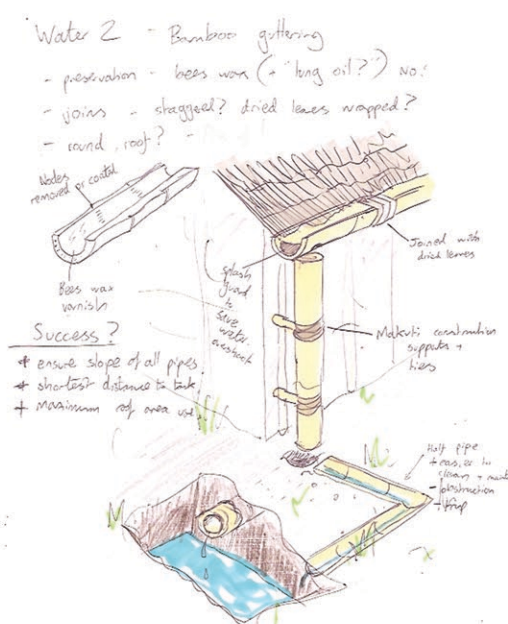 Water 2 - Bamboo guttering
- preservation - bees wax (+ "tung oil?") No!
- joins - staggered? dried leaves wrapped?
- round roof? -
Nodes
removed or coated
Bees wax
varnish
splash
guard
to
save
water
overshoot
Joined with
dried leaves
Makuti construction
supports +
tiers
Success?
+ ensure slope of all pipes
+ shortest distance to tank
+ maximum roof area use
Half pipe
+ easier to
clean +
- obstruction
- trip